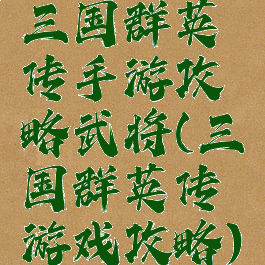 三国群英
传手游攻
略武将(三
国群英传
游戏攻略)